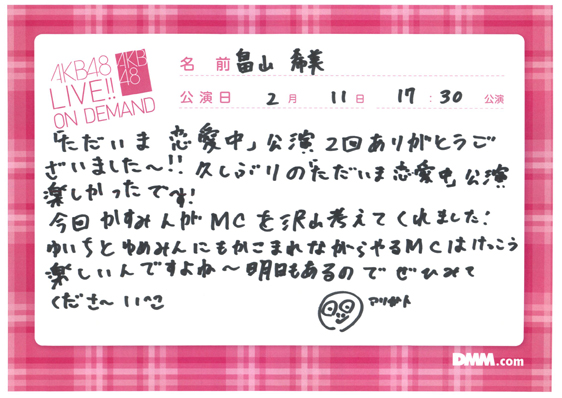 AKB48
LIVE!!
ON DEMAND
AKB
48
名 前 畠山 希美
公演日 2月 11日 17:30 公演
「ただいま 恋愛中」公演2回ありがとうご
ざいました〜!! 久しぶりの「ただいま恋愛中」公演
楽しかったです!
今回かすみんがMCを沢山考えてくれました!
ゆいちとゆめみんにもかこまれながらやるMCはけっこう
楽しいんですよね〜明日もあるのでぜひみて
くださ〜い
DMM.com